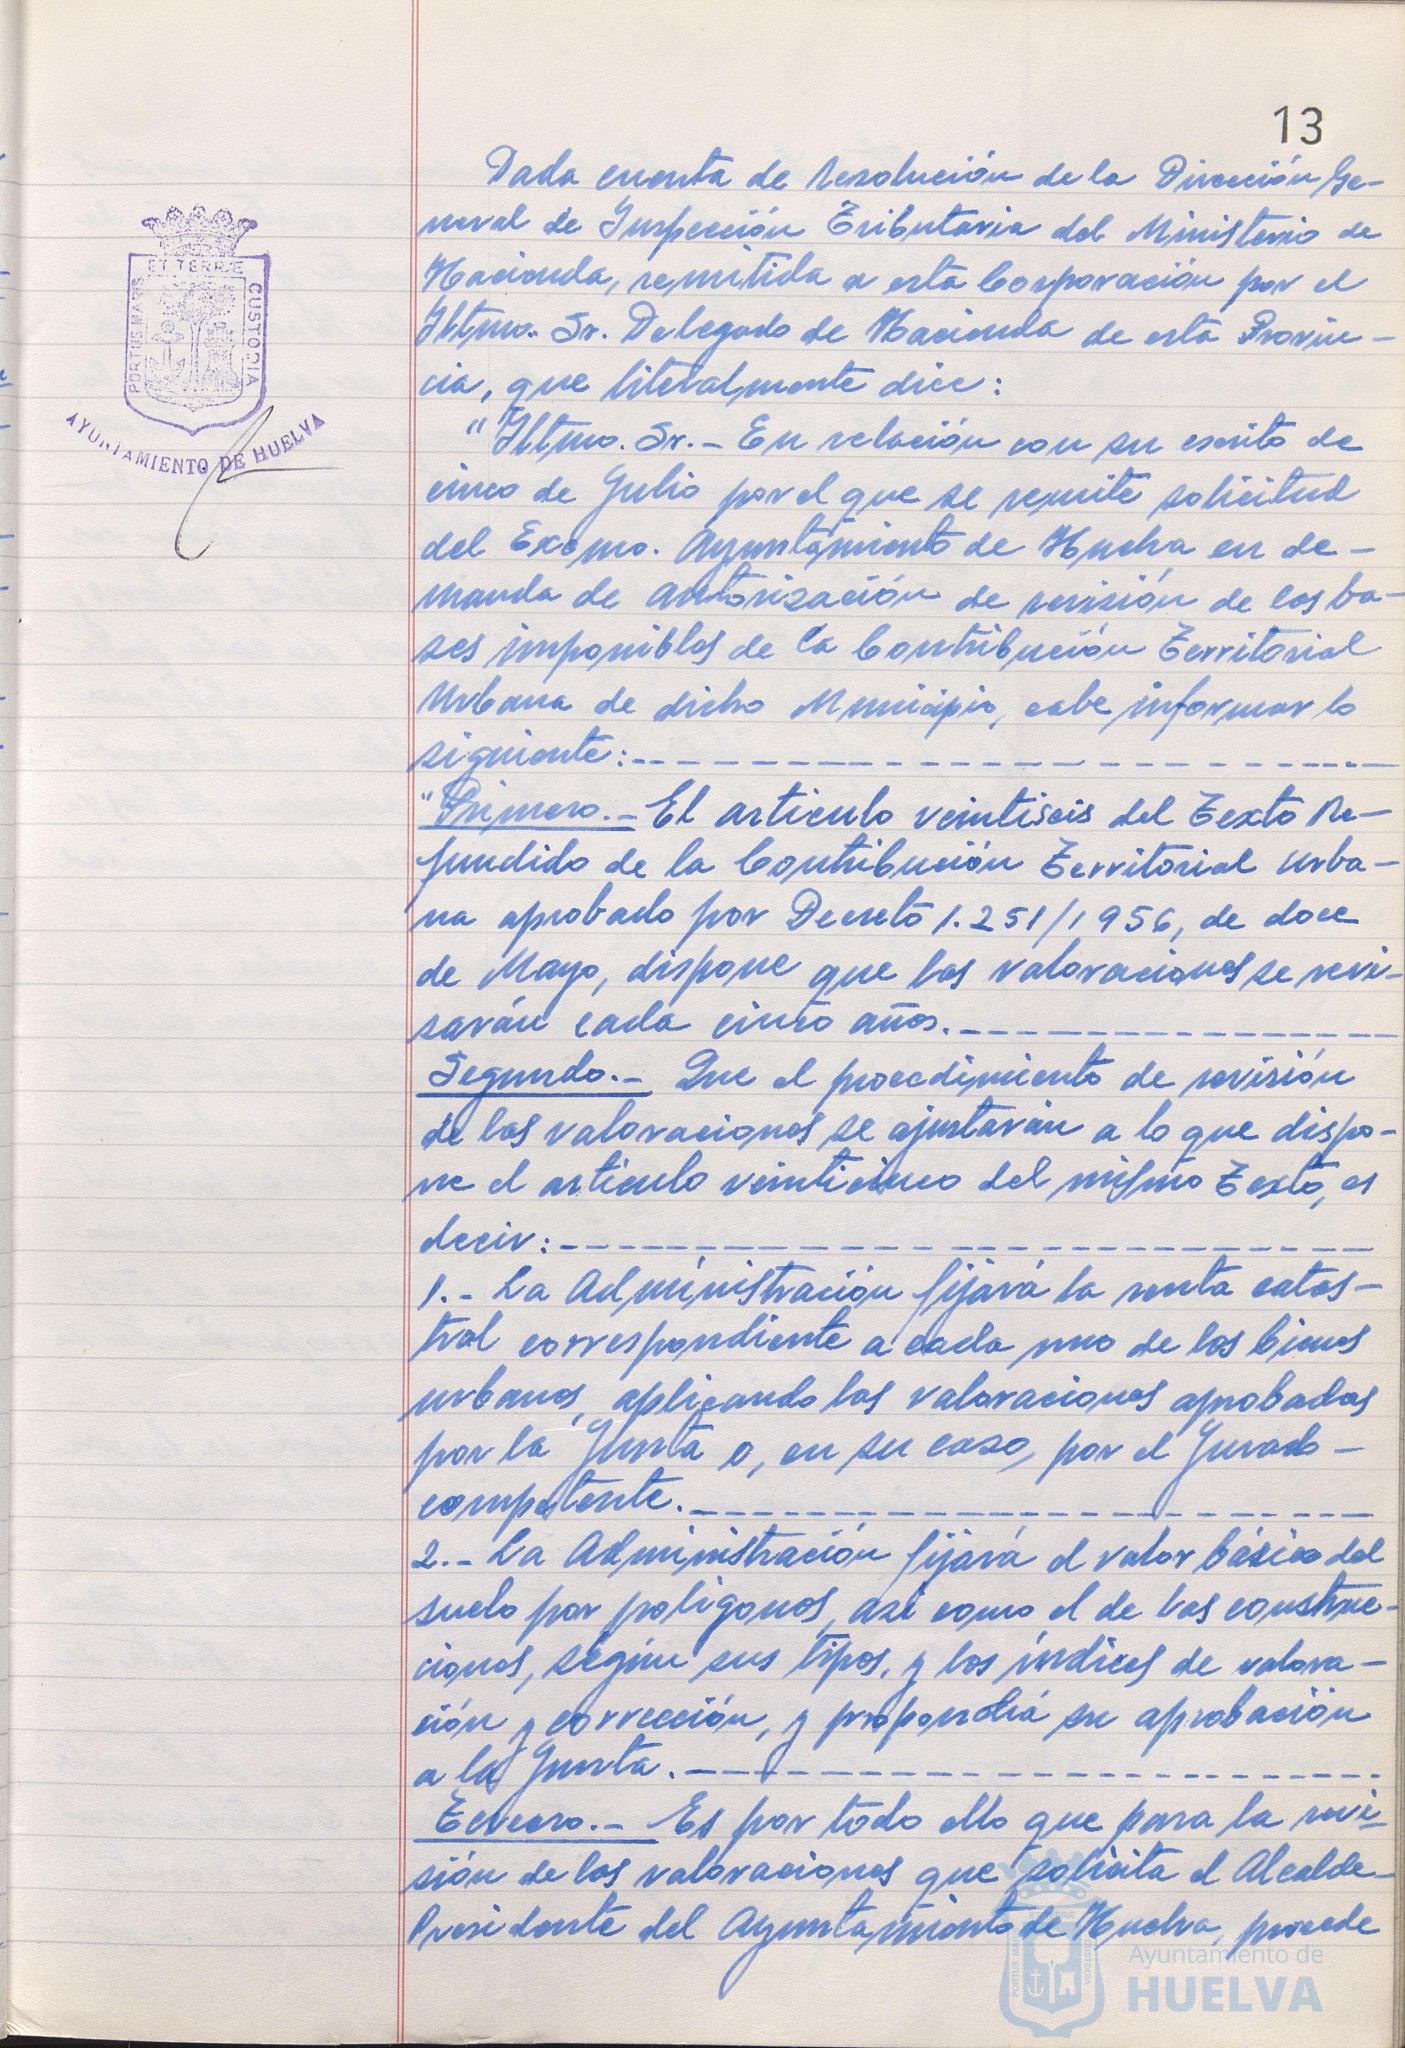 13
Dada cuenta de resolución de la Dirección Ge-
neral de Inspección Tributaria del Ministerio de
Hacienda, remitida a esta Corporación por el
Iltmo. Sr. Delegado de Hacienda de esta Provin-
cia, que literalmente dice:
"Iltmo. Sr.- En relación con su escrito de
cinco de Julio por el que se remite solicitud
del Excmo. Ayuntamiento de Huelva en de-
manda de autorización de revisión de las ba-
ses imponibles de la Contribución Territorial
Urbana de dicho Municipio, cabe informar lo
siguiente:
"Primero.- El artículo veintiseis del Texto Re-
fundido de la Contribución Territorial Urba-
na aprobado por Decreto 1.251/1956, de doce
de Mayo, dispone que las valoraciones se revi-
sarán cada cinco años.
Segundo.- Que el procedimiento de revisión
de las valoraciones se ajustarán a lo que dispo-
ne el artículo veinticinco del mismo Texto, es
decir:
1.- La Administración fijará la renta catas-
tral correspondiente a cada uno de los bienes
urbanos, aplicando las valoraciones aprobadas
por la Junta o, en su caso, por el Jurado-
competente.
2.- La Administración fijará el valor básico del
suelo por polígonos, así como el de las construc-
ciones, según sus tipos, y los índices de valora-
ción y corrección, y propondrá su aprobación
a la Junta.
Tercero.- Es por todo ello que para la revi-
sión de las valoraciones que solicita el Alcalde-
Presidente del Ayuntamiento de Huelva, procede
PORTUS MARIS
ET TERRÆ
CUSTODIA
AYUNTAMIENTO DE HUELVA
Ayuntamiento de
HUELVA